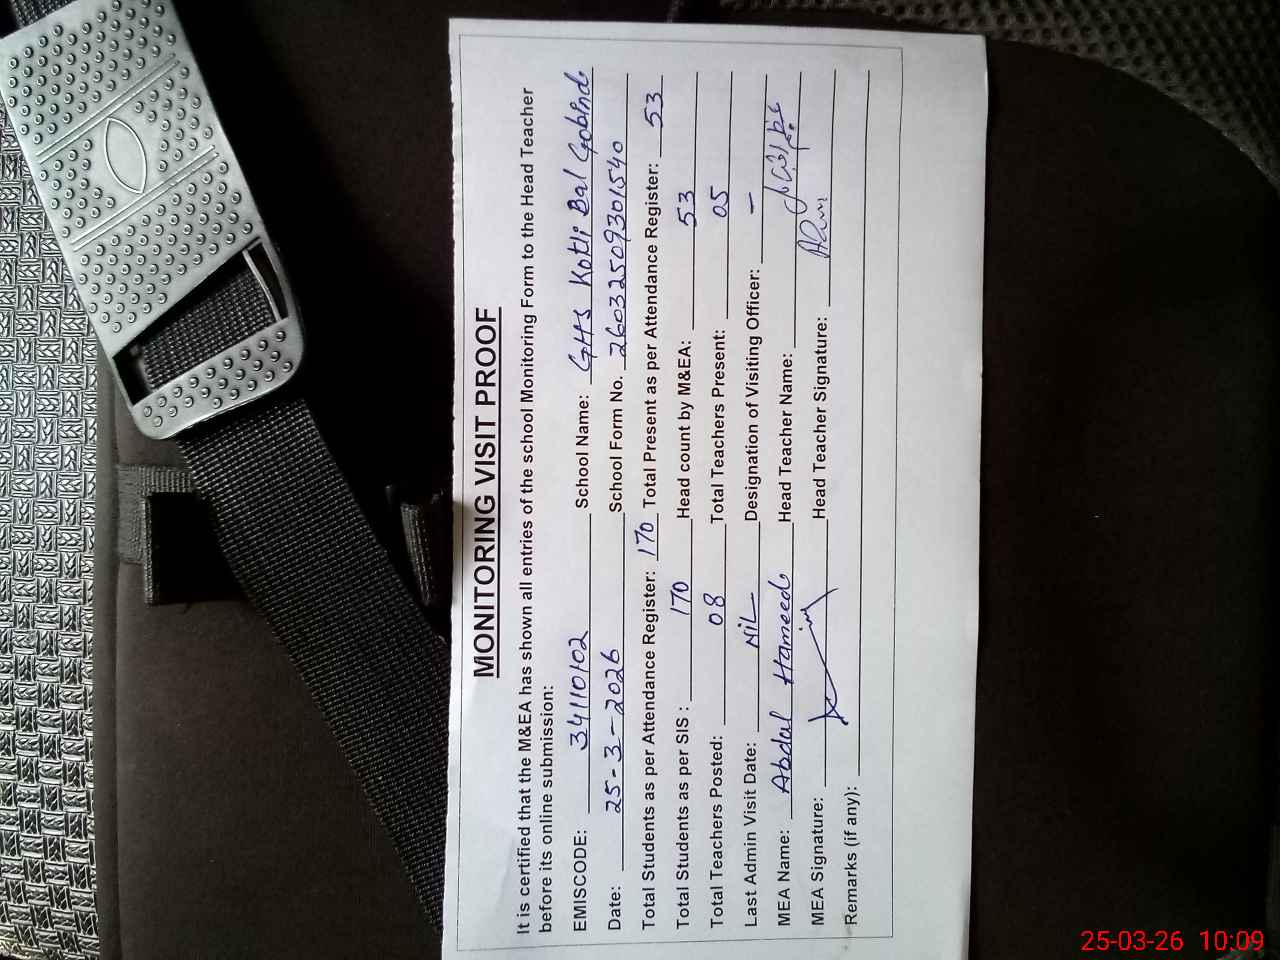 MONITORING VISIT PROOF
It is certified that the M&EA has shown all entries of the school Monitoring Form to the Head Teacher
before its online submission:
EMISCODE: 34110102 School Name: GHS Kotli Bal Gobind
Date: 25-3-2026 School Form No. 26032509301540
Total Students as per Attendance Register: 170 Total Present as per Attendance Register: 53
Total Students as per SIS : 170 Head count by M&EA: 53
Total Teachers Posted: 08 Total Teachers Present: 05
Last Admin Visit Date: NIL Designation of Visiting Officer: -
MEA Name: Abdul Hameed Head Teacher Name:
MEA Signature: Head Teacher Signature:
Remarks (if any):
25-03-26 10:09